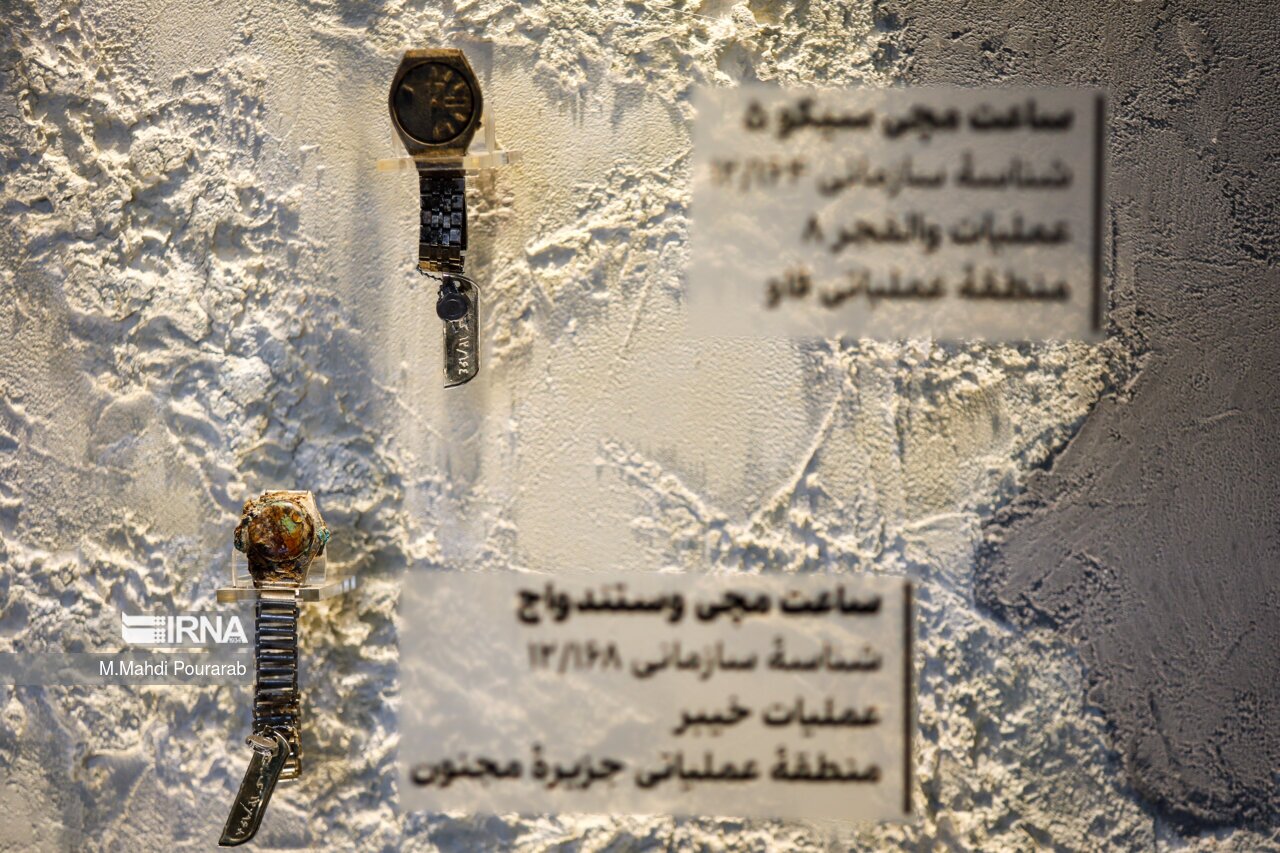 ساعت مچی سیکو ۵
شناسهٔ سازمانی ۱۲/۱۶۳
عملیات والفجر ۸
منطقهٔ عملیاتی فاو
ساعت مچی وستندواچ
شناسهٔ سازمانی ۱۲/۱۶۸
عملیات خیبر
منطقهٔ عملیاتی جزیرهٔ مجنون
IRNA
M.Mahdi Pourarab